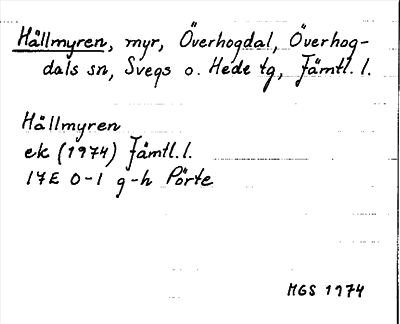 Hållmyren, myr, Överhogdal, Överhog-
dals sn, Svegs o. Hede tg, Jämtl. l.
Hållmyren
ek (1974) Jämtl. l.
17E 0-1 g-h Pörte
MGS 1974